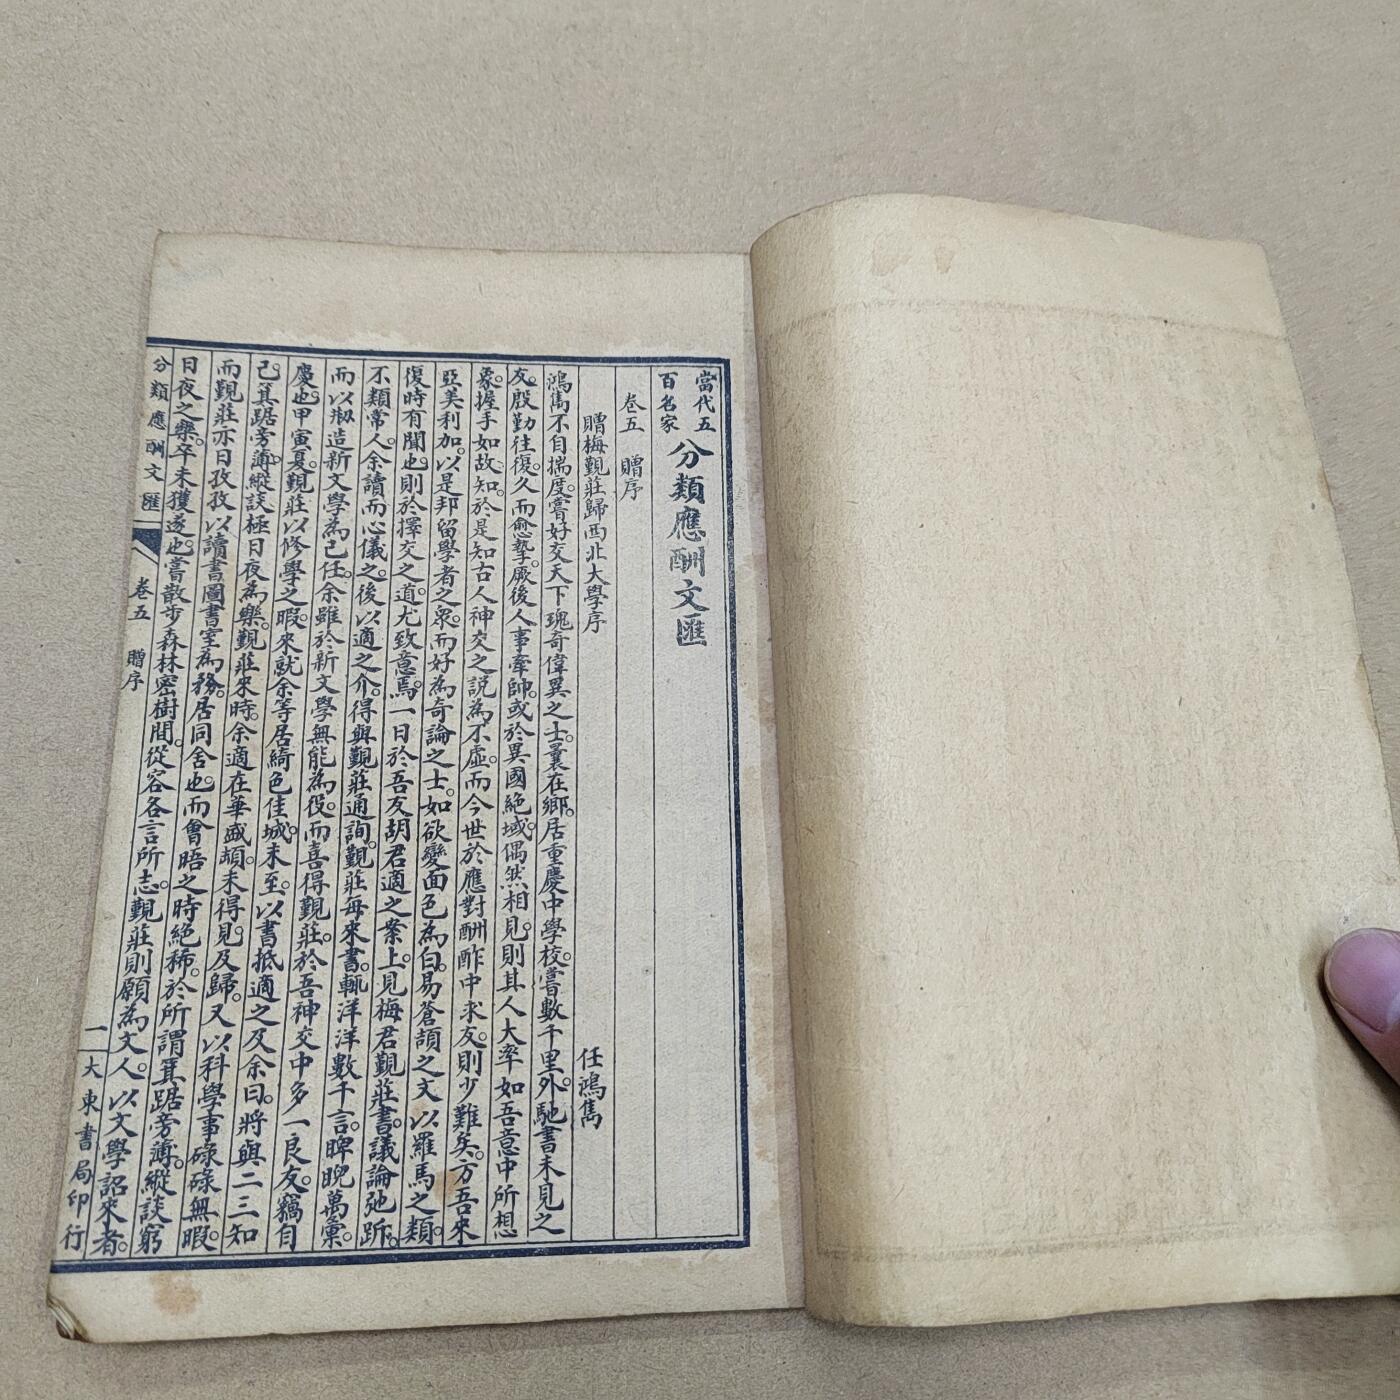 當代五
百名家
分類應酬文匯
卷五 贈序
贈梅覲莊歸西北大學序
任鴻雋
鴻雋不自揣度。嘗好交天下瑰奇偉異之士。曩在鄉。居重慶中學校。嘗數千里外。馳書未見之
友。殷勤往復。久而愈摯。厥後人事牽帥。或於異國絕域。偶然相見。則其人大率如吾意中所想
象。握手如故知。於是知古人神交之說為不虛。而今世於應對酬酢中求友。則少難矣。方吾來
亞美利加。以是邦留學者之眾。而好為奇論之士。如欲變面色為白。易蒼頡之文以羅馬之類。
復時有聞也。則於擇交之道。尤致意焉。一日於吾友胡君適之案上。見梅君覲莊書。議論弛跅。
不類常人。余讀而心儀之。後以適之介。得與覲莊通詢。覲莊每來書。輒洋洋數千言。睥睨萬彙。
而以刱造新文學為己任。余雖於新文學無能為役。而喜得覲莊。於吾神交中多一良友。竊自
慶也。甲寅夏。覲莊以修學之暇。來就余等居綺色佳城。未至。以書抵適之及余曰。將與二三知
己。箕踞旁薄。縱談極日夜為樂。覲莊來時。余適在華盛頓。未得見。及歸。又以科學事碌碌無暇。
而覲莊亦日孜孜以讀書圖書室為務。居同舍也。而會晤之時絕稀。於所謂箕踞旁薄。縱談窮
日夜之樂。卒未獲遂也。嘗散步森林密樹間。從容各言所志。覲莊則願為文人。以文學詔來者。
分類應酬文匯
卷五 贈序
一
大東書局印行